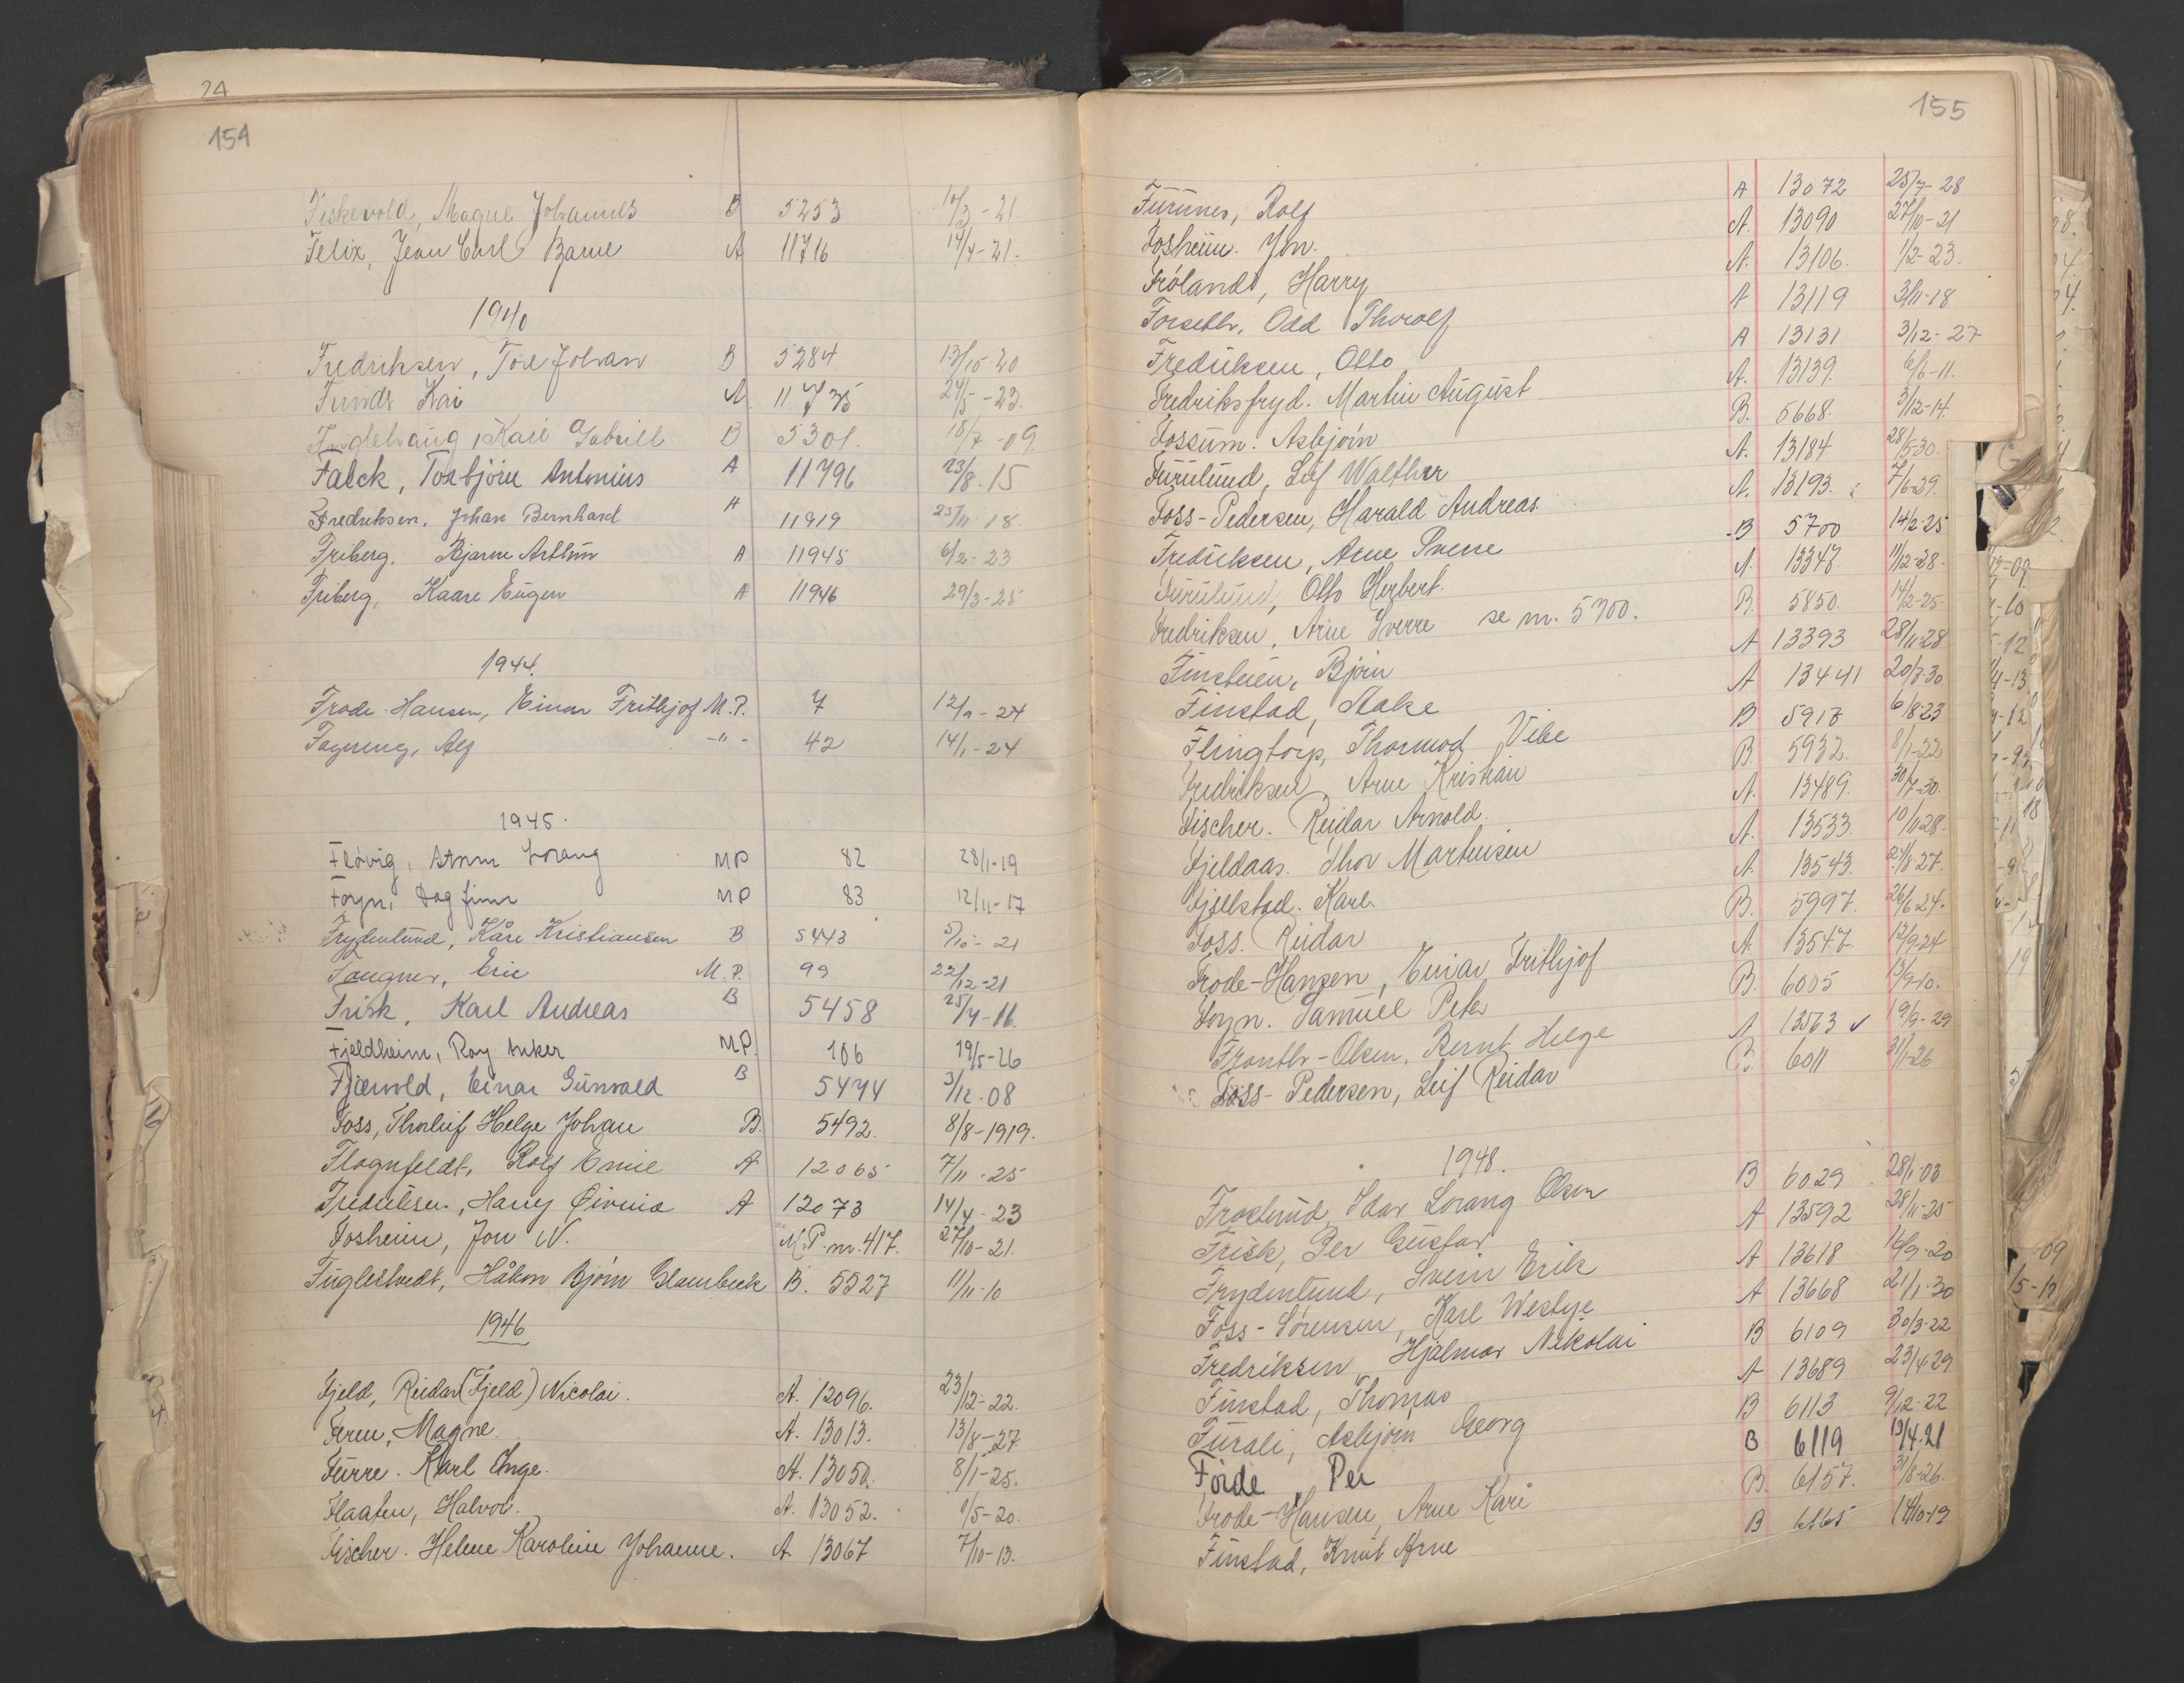 24
154
Fiskevold, Magne Johannes B 5253 10/3-21
Felix, Jean Carl Barne A 11716 14/4-21.
1940
Fredriksen, Tor Johan B 5284 13/10-20
Funds Kai A. 11735 24/5-23.
Kari Gabriell B 5301. 18/7-09.
Falck, Torbjörn Antonius A 11796 23/8.15
Fredriksen, Johan Bernhard A 11919 25/11-18.
Friberg, Bjarne Arthur A 11945 6/2-23
Friberg, Kaare Eugen A 11946 29/3-25
1944.
Frode-Hansen, Einar Frithjof M.P. 7 12/9-24
Fagereng, Alf -"- 42 14/1-24
1945.
Fløvig, Lorang MP 82 28/1-19
Foyn, Dag finn MP 83 12/11-17
Frydenlund, Kåre Kristiansen B 5443 5/10-21
Fougner, Eric M.P. 99 22/12-21
Frisk, Karl Andreas B 5458 25/4-16.
Fjeldheim, Roy Anker MP. 106 19/5-26
Fjærvold, Einar Gunvald B 5474 3/12.08
Foss, Thorleif Helge Johan B. 5492. 8/8-1919.
Flognfeldt, Rolf Emil A 12065 7/11-25
Fredriksen, Harry Øivind A 12073 14/4-23
Fosheim, Jon N. M.P. nr. 417. 27/10-21.
Fuglestvedt, Håkon Bjørn Glambeck B. 5527 11/11-10
1946
Fjeld, Reidar (Fjeld) Nicolai. A. 12096. 23/12-22.
Feren, Magne. A. 13013. 13/8-27
Furre. Karl Inge. A. 13050. 8/1-25.
Flaaten, Halvor. A. 13052. 1/5-20.
Fischer. Helene Karoline Johanne. A. 13067 7/10-13.
155
Furunes, Rolf A 13072 25/7-28
Fosheim. Jon. A. 13090 27/10-21
Fröland, Harry A. 13106. 1/2-23.
Forseth, Odd Thorolf A 13119 3/11-18
Fredriksen, Otto A 13131 3/12-27
Fredriksfryd. Martin August A. 13139. 6/6-11.
Fossum. Asbjørn B. 5668. 3/12-14.
Furulund, Leif Walther A. 13184 28/5-30.
Foss-Pedersen, Harald Andreas. A. 13193. 7/6-29.
Fredriksen, Arne Sverre B 5700 14/2-25
Furulund, Otto Herbert. A. 13347. 11/12-28.
Fredriksen, Arne Sverre se nr. 5700. B. 5850. 14/2-25.
Finsteen, Bjørn A 13393 28/11-28
Finstad, Aake A 13441 20/7-30
Flingtorp, Thormod Vibe B 5917 6/8-23
Fredriksen, Arne Kristian B. 5932. 8/1-22
Fischer. Reidar Arnold. A. 13489. 30/7-30.
Fjeldaas. Thor Martinsen A. 13533. 10/11-28.
Fjellstad. Karl. A. 13543. 24/8-27.
Foss. Reidar B. 5997. 26/6-24.
Frode-Hansen, Einar Frithjof A. 13547. 12/9-24
Foyn. Samuel Peter B. 6005 13/9-10.
Olsen, Bernt Helge A. 13563 ✓ 19/9-29
Foss-Pedersen, Leif Reidar B. 6011 31/1-26
1948.
Frostrud, Idar Lorang Olsen B 6029 28/1-03
Frisk, Per Gustav A 13592 28/11-25
Frydenlund, Svein Erik A 13618 16/9-20
Foss-Sørensen, Karl Westye A 13668 21/1-30
Fredriksen, Hjalmar Nikolai B 6109 30/3-22
Finstad, Thomas A 13689 23/4-29
Furali, Asbjørn Georg B 6113 9/12-22
Förde, Per B 6119 13/4-21
Frode-Hansen, Arne Kari B. 6157. 31/8-26.
Finstad, Knut Arne B 6165 14/10-19